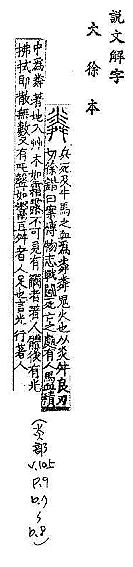 説文解字
大徐本
粦 兵死及牛馬之血爲粦粦鬼火也从炎舛 良刃
切徐鍇曰案博物志戰鬬死亡之處有人馬血積
中爲粦著地入艸木如霜露不可見有觸者著人體後有光
拂拭即散無數又有吒聲如鬻豆舛者人足也言光行著人
(炎部
v.10上
p.9
b.7
~
b.8)